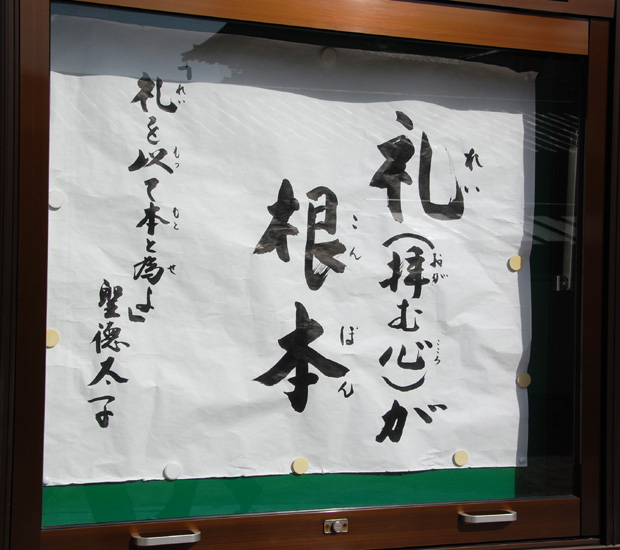 礼(拝む心)が
れい
おが
こころ
根本
こんぽん
「礼を以て本と為よ」
れい
もっ
もと
せ
聖徳太子